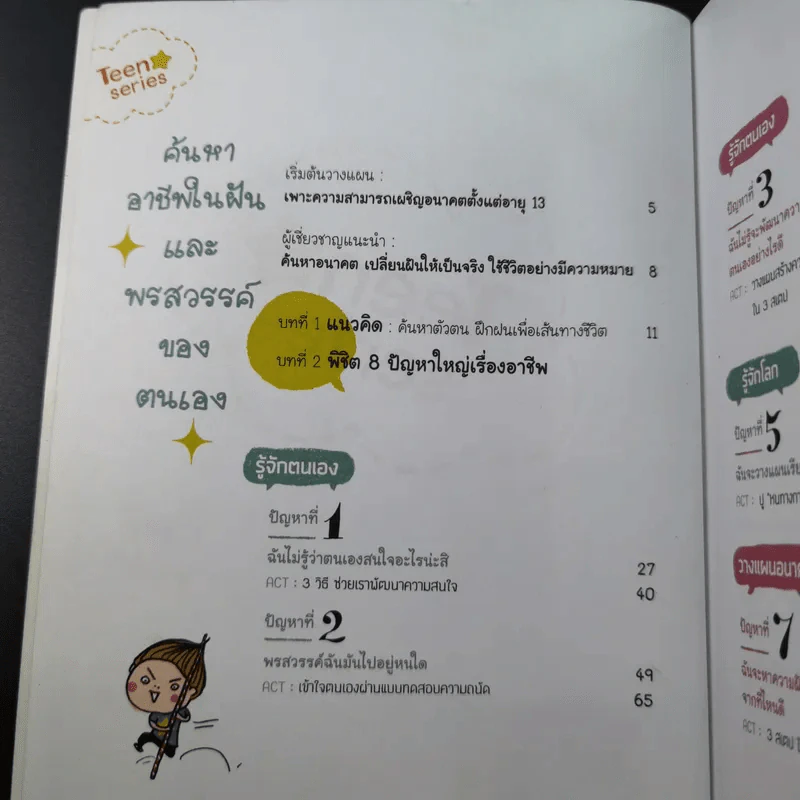 Teen
series
ค้นหา
อาชีพในฝัน
และ
พรสวรรค์
ของ
ตนเอง
เริ่มต้นวางแผน :
เพาะความสามารถเผชิญอนาคตตั้งแต่อายุ 13 5
ผู้เชี่ยวชาญแนะนำ :
ค้นหาอนาคต เปลี่ยนฝันให้เป็นจริง ใช้ชีวิตอย่างมีความหมาย 8
บทที่ 1 แนวคิด : ค้นหาตัวตน ฝึกฝนเพื่อเส้นทางชีวิต 11
บทที่ 2 พิชิต 8 ปัญหาใหญ่เรื่องอาชีพ
รู้จักตนเอง
ปัญหาที่ 1
ฉันไม่รู้ว่าตนเองสนใจอะไรน่ะสิ 27
ACT : 3 วิธี ช่วยเราพัฒนาความสนใจ 40
ปัญหาที่ 2
พรสวรรค์ฉันมันไปอยู่หนใด 49
ACT : เข้าใจตนเองผ่านแบบทดสอบความถนัด 65
รู้จักตนเอง
ปัญหาที่ 3
ฉันไม่รู้จะพัฒนาควา
ตนเองอย่างไรดี
ACT : วางแผนสร้างคว
ใน 3 สเตป
รู้จักโลก
ปัญหาที่ 5
ฉันจะวางแผนเรีย
ACT : ปู "หนทางกา
วางแผนอนาค
ปัญหาที่ 7
ฉันจะหาความฝั
จากที่ไหนดี
ACT : 3 สเตป